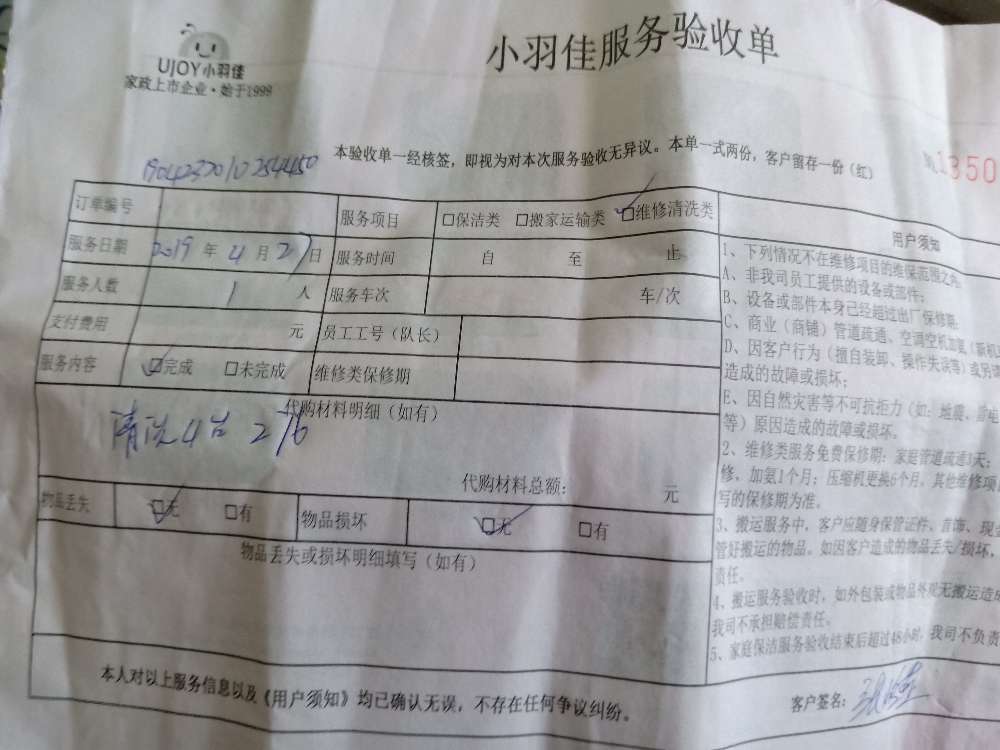 UJOY小羽佳
家政上市企业·始于1999
小羽佳服务验收单
本验收单一经核签，即视为对本次服务验收无异议。本单一式两份，客户留存一份（红）
1350
1904232010254450
订单编号 服务项目 □保洁类 □搬家运输类 ☑维修清洗类
服务日期 2019年4月27日 服务时间 自 至 止
服务人数 1人 服务车次 车/次
支付费用 元 员工工号（队长）
服务内容 ☑完成 □未完成 维修类保修期
代购材料明细（如有）
清洗4台 276
代购材料总额： 元
物品丢失 ☑无 □有 物品损坏 ☑无 □有
物品丢失或损坏明细填写（如有）
用户须知
1、下列情况不在维修项目的维保范围之内：
A、非我司员工提供的设备或部件；
B、设备或部件本身已经超过出厂保修期；
C、商业（商铺）管道疏通、空调空机加氨（新机
D、因客户行为（擅自装卸、操作失误等）或另请
造成的故障或损坏；
E、因自然灾害等不可抗拒力（如：地震、雷电
等）原因造成的故障或损坏。
2、维修类服务免费保修期：家庭管道疏通3天；
修，加氨1个月；压缩机更换6个月，其他维修项
写的保修期为准。
3、搬运服务中，客户应随身保管证件、首饰、现金
管好搬运的物品。如因客户造成的物品丢失/损坏，
责任。
4、搬运服务验收时，如外包装或物品外观无搬运造成
我司不承担赔偿责任。
5、家庭保洁服务验收结束后超过48小时，我司不负责
本人对以上服务信息以及《用户须知》均已确认无误，不存在任何争议纠纷。
客户签名：